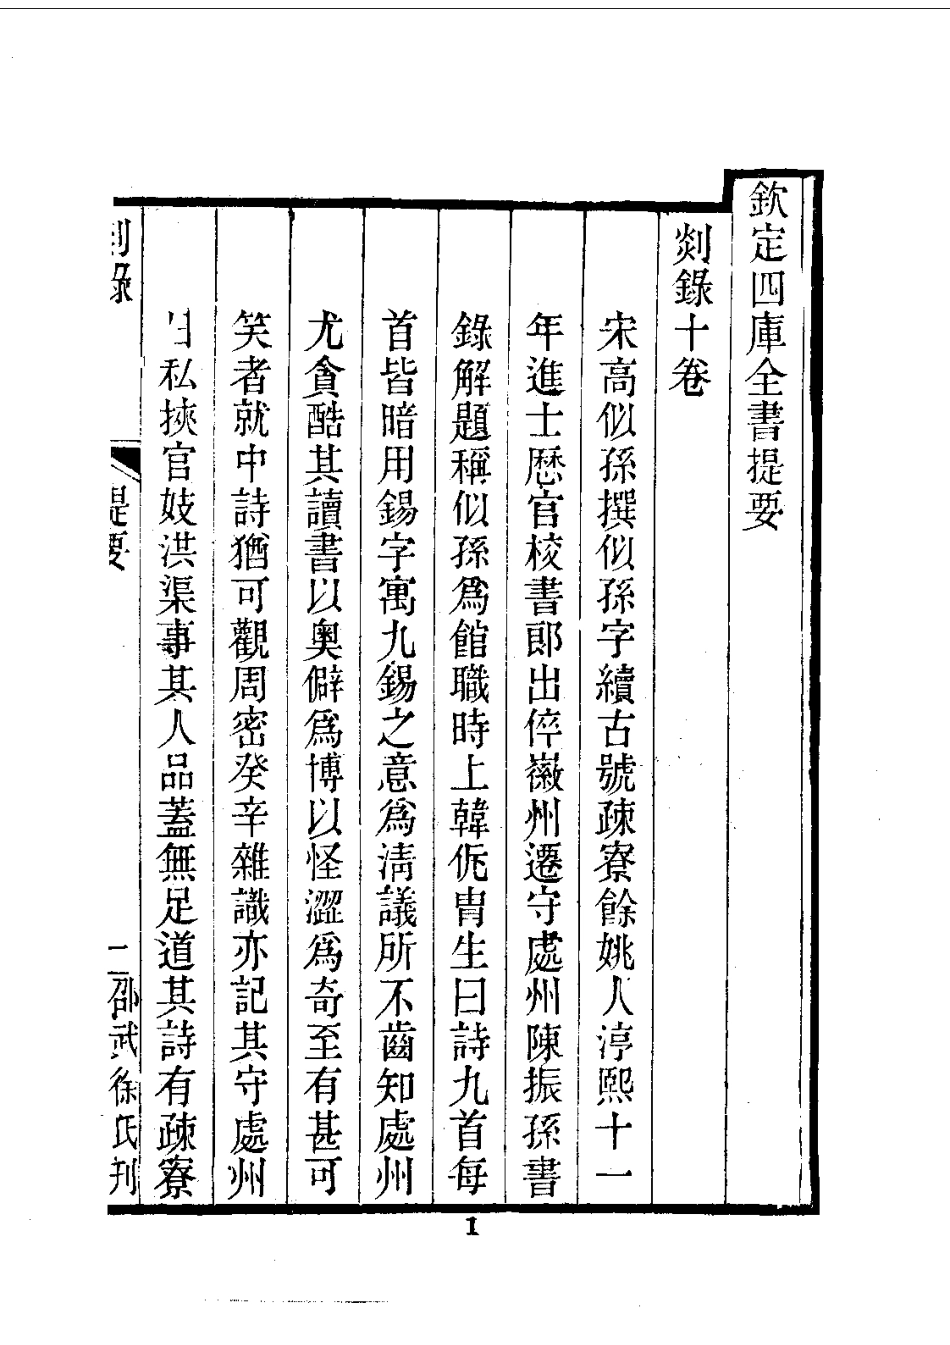 欽定四庫全書提要
剡錄十卷
宋高似孫撰似孫字續古號疎寮餘姚人淳熙十一
年進士歷官校書郎出倅徽州遷守處州陳振孫書
錄解題稱似孫爲館職時上韓侂胄生日詩九首每
首皆暗用錫字寓九錫之意爲清議所不齒知處州
尤貪酷其讀書以奧僻爲博以怪澀爲奇至有甚可
笑者就中詩猶可觀周密癸辛雜識亦記其守處州
日私挾官妓洪渠事其人品蓋無足道其詩有疎寮
剡錄 提要 一 邵武徐氏刊
1